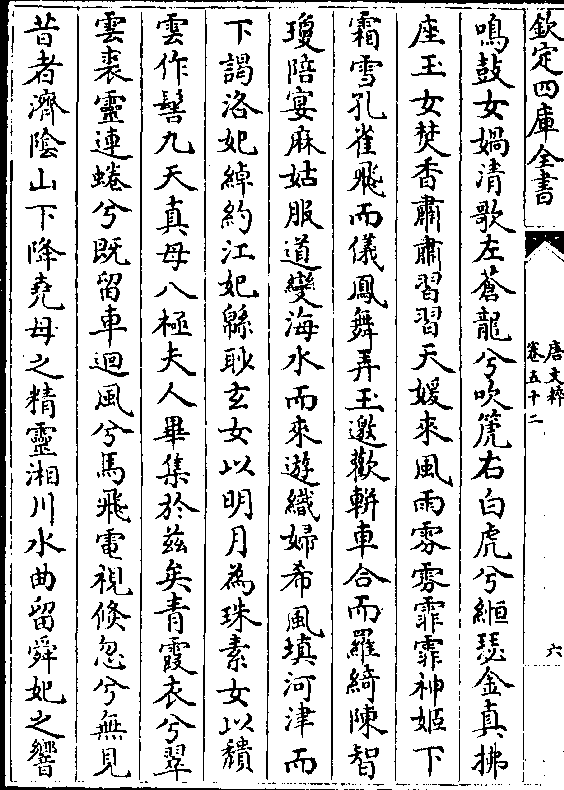 欽定四庫全書
唐文粹
卷五十二
六
鳴鼓女媧清歌左蒼龍兮吹箎右白虎兮緪瑟金真拂
座玉女焚香肅肅習習天媛來風雨雰雰霏霏神姬下
霜雪孔雀飛而儀鳳舞弄玉邀歡軿車合而羅綺陳智
瓊陪宴麻姑服道變海水而來遊織婦希風填河津而
下謁洛妃綽約江妃緜眇玄女以明月為珠素女以積
雲作髻九天真母八極夫人畢集於茲矣青霞衣兮翠
雲裘靈連蜷兮既留車迴風兮馬飛電視倏忽兮無見
昔者濟隂山下降堯母之精靈湘川水曲留舜妃之響